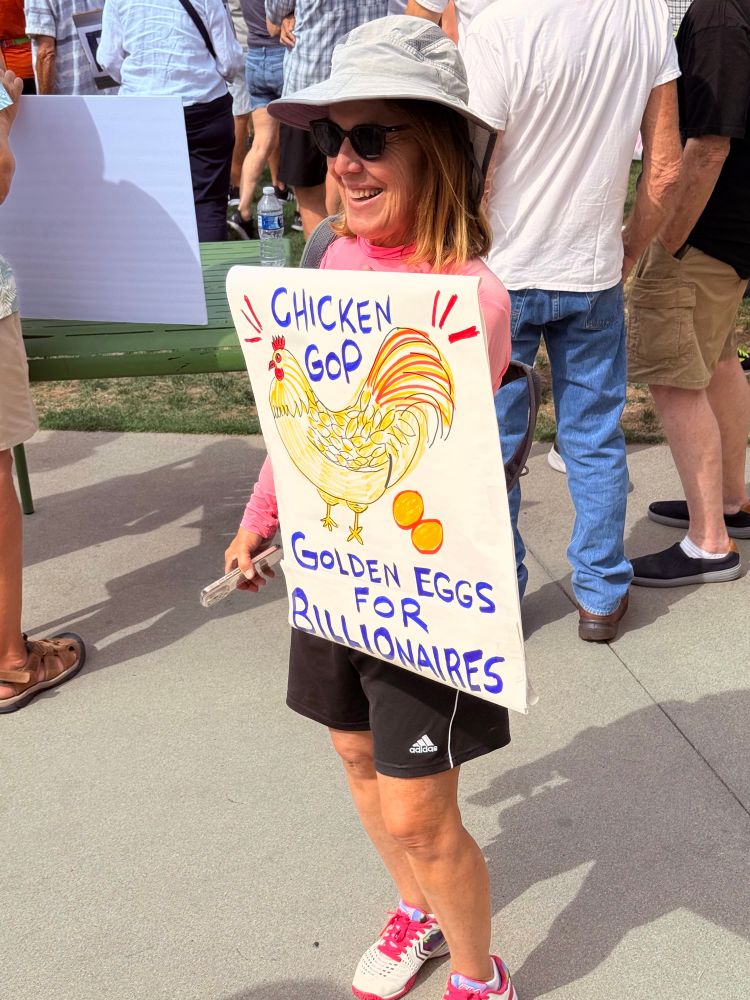 CHICKEN
GOP
GOLDEN EGGS
FOR
BILLIONAIRES
adidas